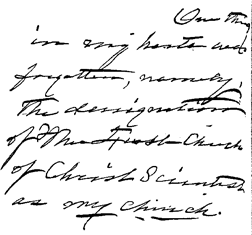 One thing
in my haste was
forgotten, namely,
The designation
of The First Church
of Christ Scientist
as my church.